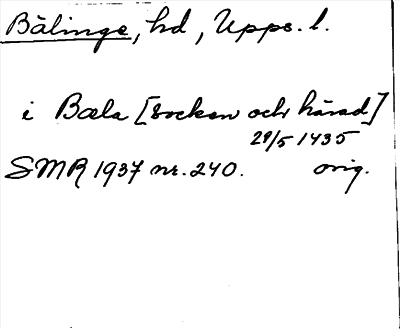 Bälinge, hd, Upps. l.
i Bæla [socken och härad]
29/5 1435
SMR 1937 nr. 240. orig.